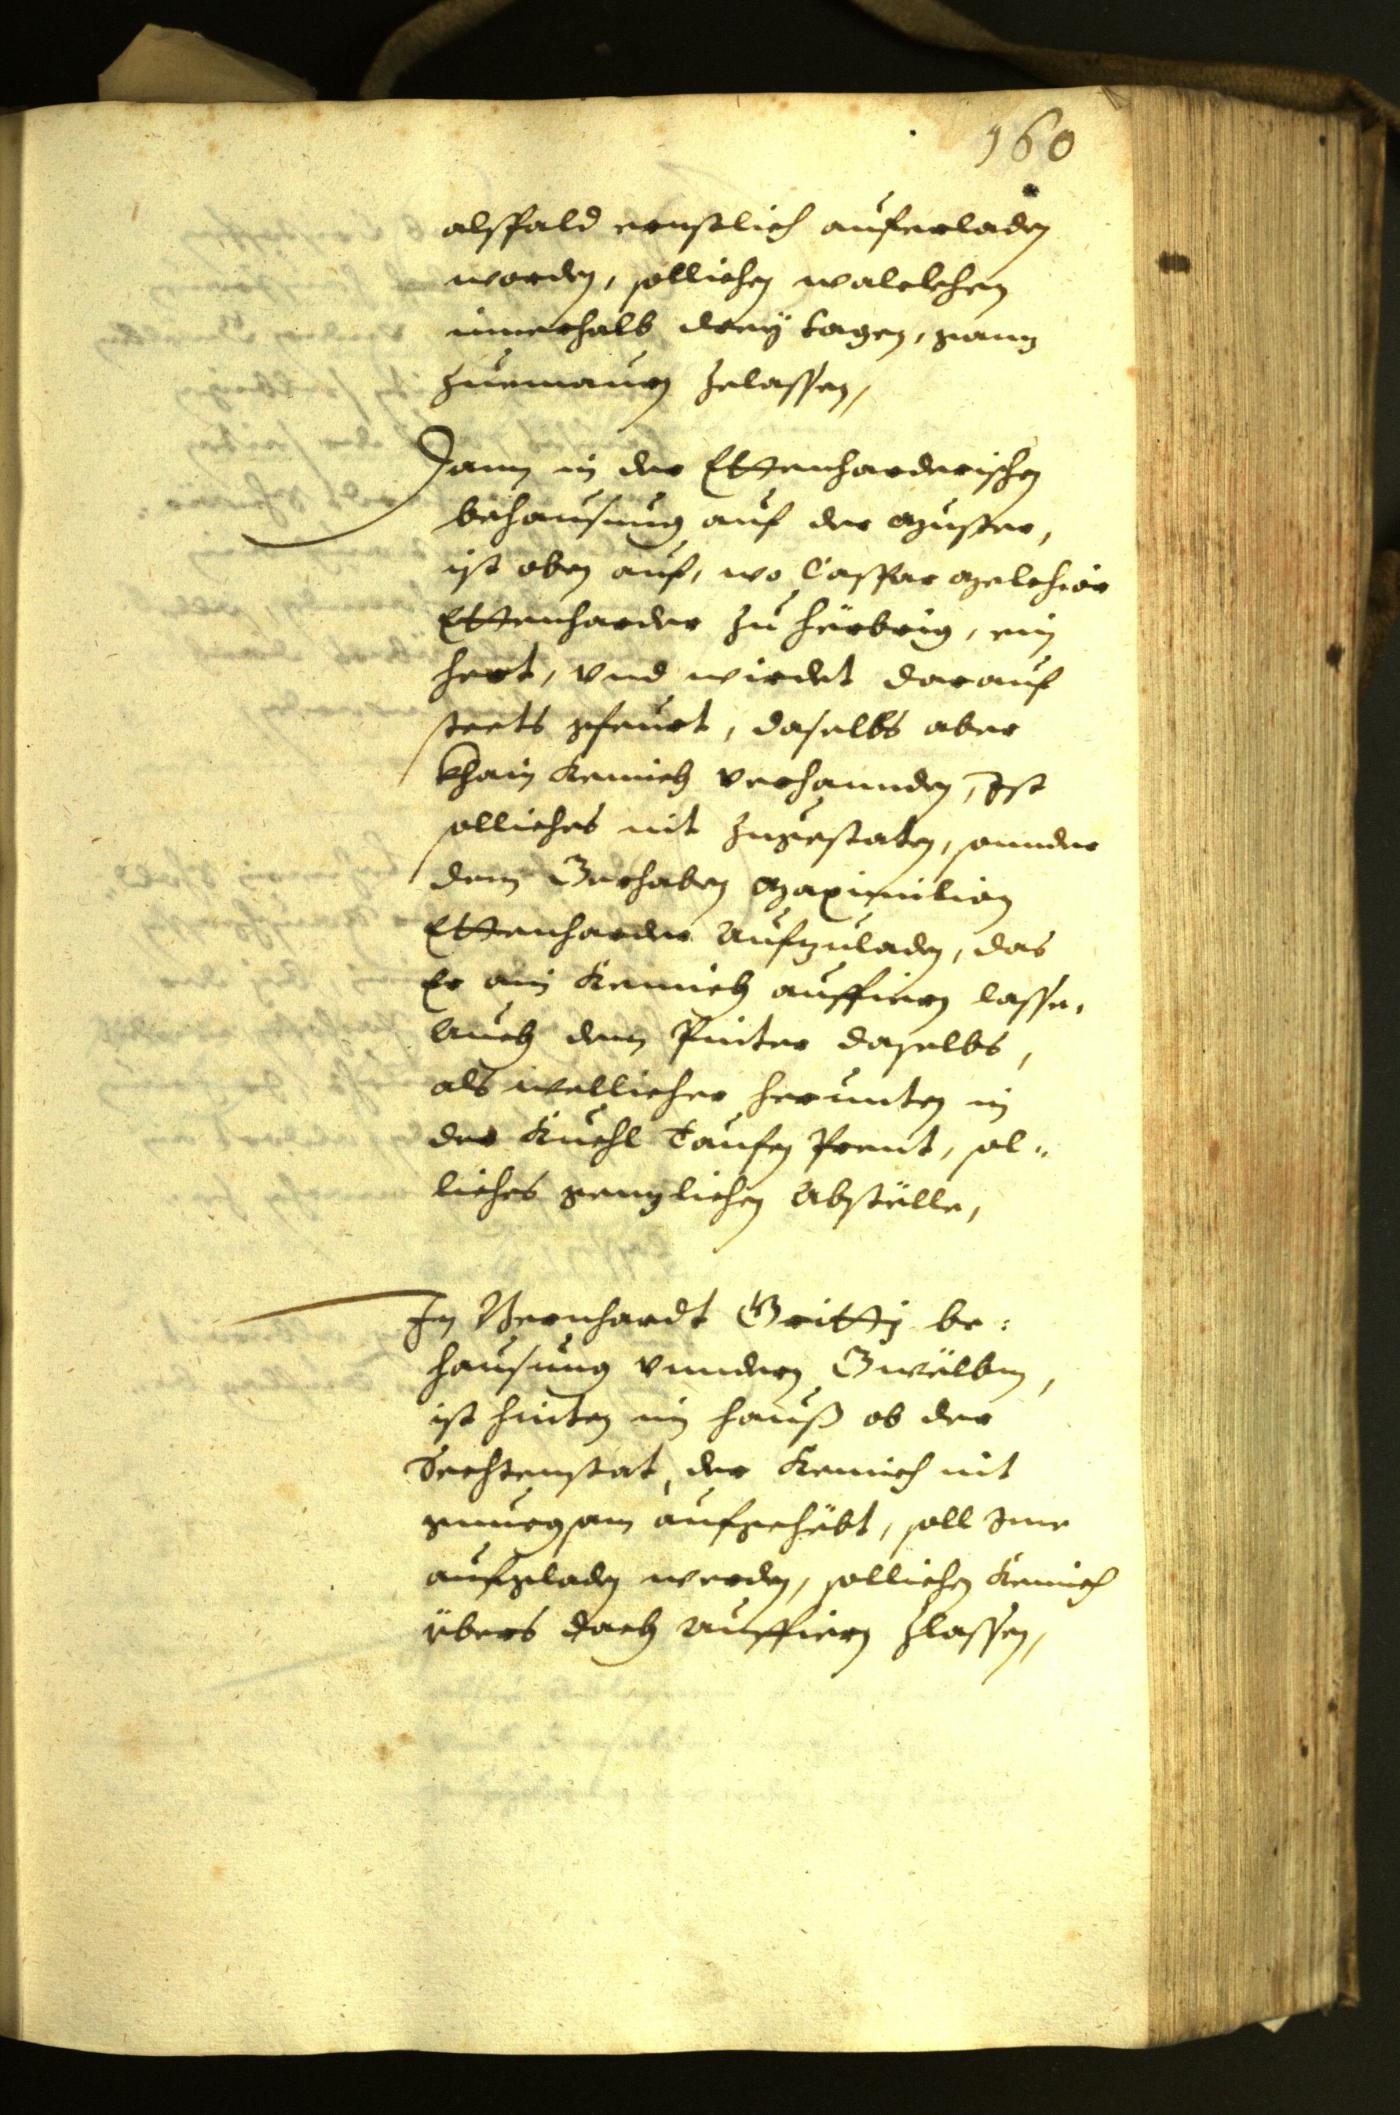 160
alspald ernstlich auferladen
worden, sollichen walelchen
innerhalb dreÿ tagen, gannz
zuemaurn zelassen,
Dann in der Ettenharderischen
behausung auf der Muster,
ist oben auf, wo Caspar Melchior
Ettenharder zu herbrig, ein
hert, vnd wirdet darauf
steets gfeurt, daselbs aber
khain Kemich verhannden, Ist
solliches nit zugestaten, sonnder
dem Gerhaben Maximilian
Ettenharder aufzuladen, das
Er ain Kemich auffiern lasse,
Auch dem Pinter daselbs,
als wellicher herunten in
der Kuchl Taufen Prent, sol-
liches genzlichen Abstölle,
In Bernhardt Gritti be-
hausung vnndern Gwölbm,
ist hinten im hauß ob der
Sechtenstat, der Kemich nit
gnuegsam aufgehöbt, soll Ime
aufgladen werden, sollichen Kemich
übers dach auffiern zlassen,